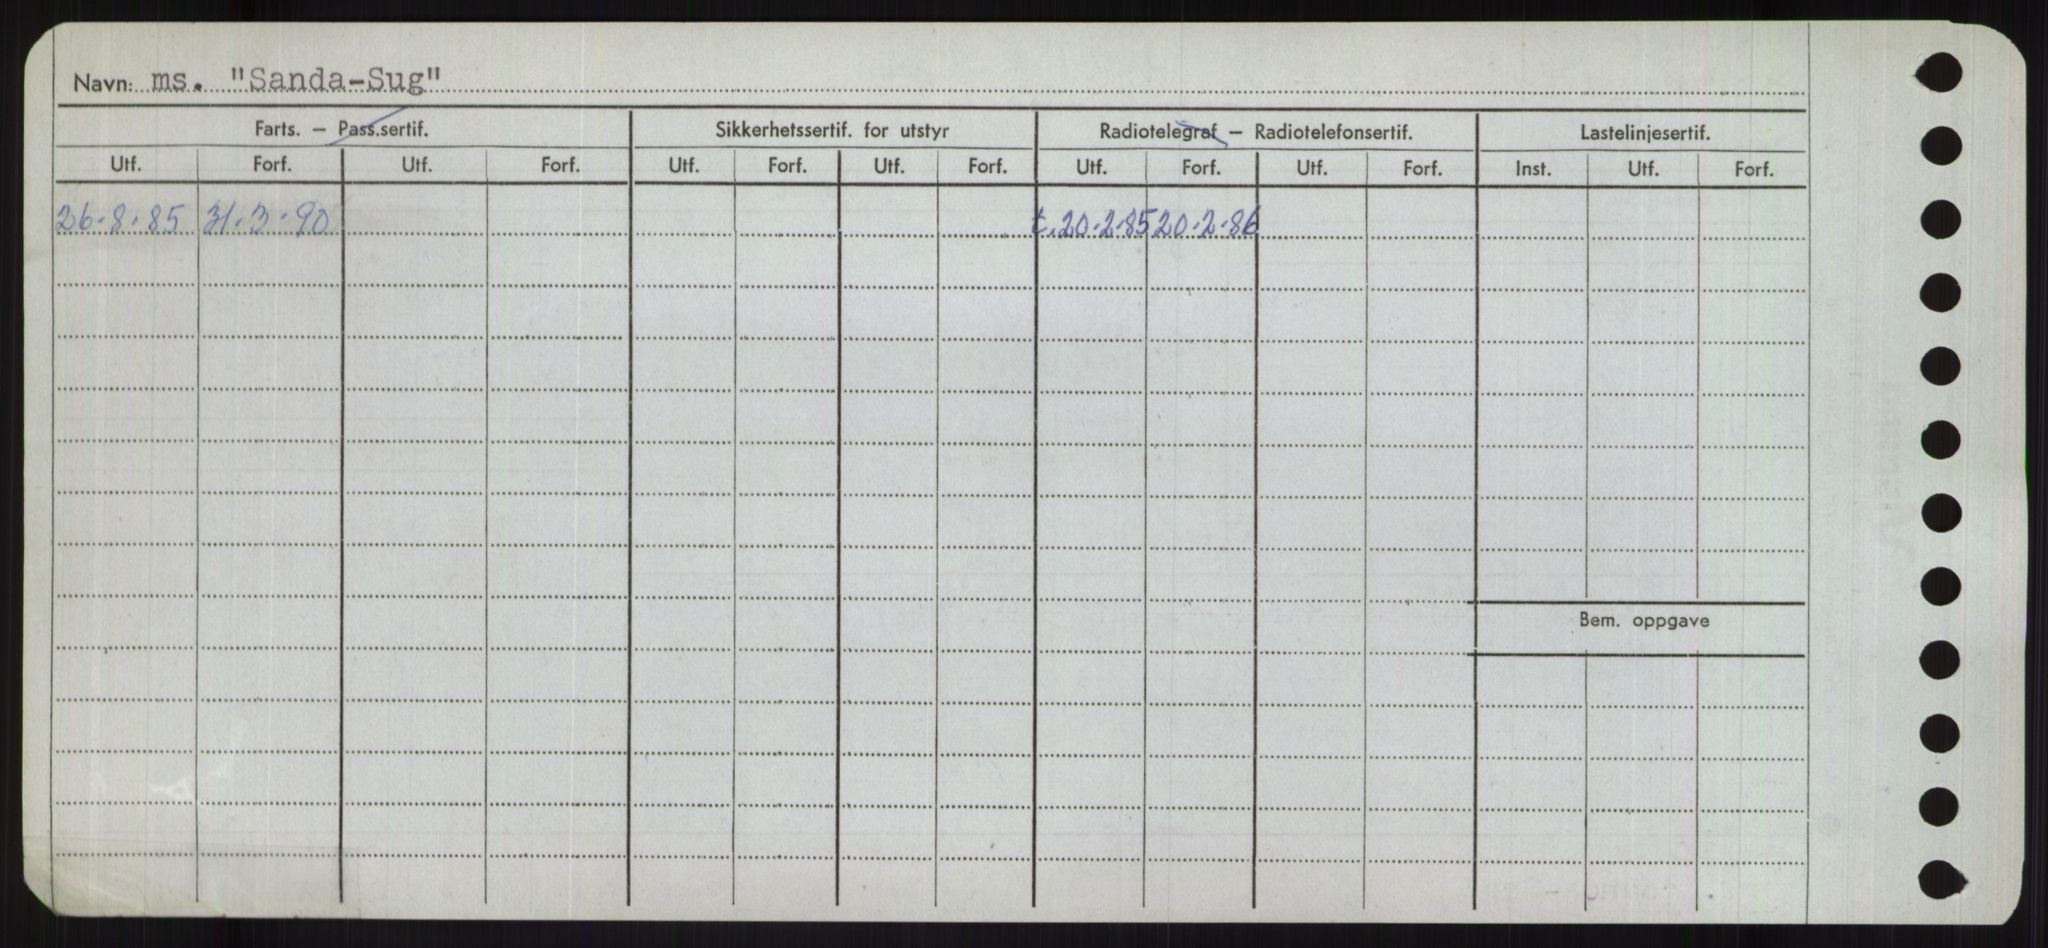 Navn: ms. "Sanda-Sug"
Farts. – Pass.sertif. Sikkerhetssertif. for utstyr Radiotelegraf – Radiotelefonsertif. Lastelinjesertif.
Utf. Forf. Utf. Forf. Utf. Forf. Utf. Forf. Utf. Forf. Utf. Forf. Inst. Utf. Forf.
26.8.85 31.3.90 t. 20.2.85 20.2.86
Bem. oppgave